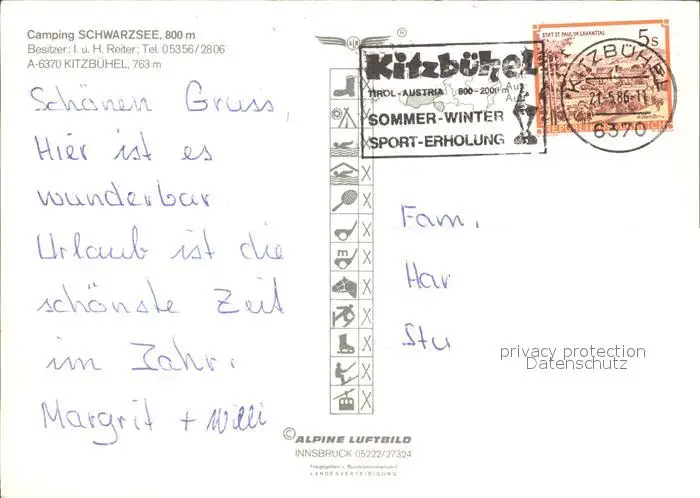 Camping SCHWARZSEE, 800 m
Besitzer: I. u. H. Reiter; Tel. 05356/2806
A-6370 KITZBÜHEL, 763 m
Schönen Gruss,
Hier ist es
wunderbar
Urlaub ist die
schönste Zeit
im Jahr.
Margrit + Willi
Kitzbühel
TIROL-AUSTRIA 800-2000 m
SOMMER-WINTER
SPORT-ERHOLUNG
STIFT ST. PAUL IM LAVANTTAL
5s
REPUBLIK ÖSTERREICH
KITZBÜHEL
6370
Fam.
Har
Stu
privacy protection
Datenschutz
© ALPINE LUFTBILD
INNSBRUCK 05222/27324
Freigegeben v. Bundesministerium f.
LANDESVERTEIDIGUNG